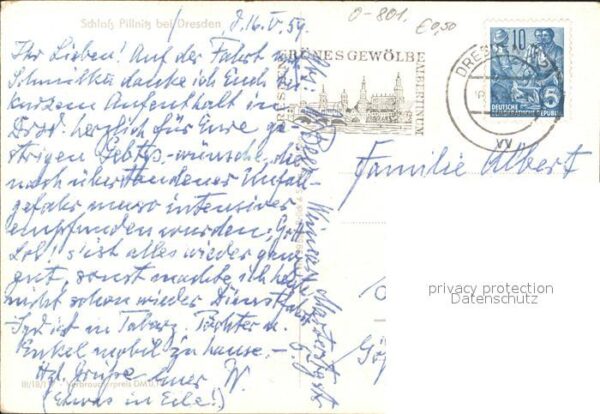 Schloß Pillnitz bei Dresden
d. 16. V. 59.
0-801.
€0,50
Ihr Lieben! Auf der Fahrt nach
Schmilka danke ich Euch bei
kurzem Aufenthalt in
Drsd. herzlich für Eure ge-
strigen Gebtgs.-wünsche, die
nach überstandener Unfall-
gefahr umso intensiver
empfunden wurden; Gott
Lob! s'ist alles wieder ganz
gut, sonst machte ich heute
nicht schon wieder Dienstfahrt
ist in Tabarz. Töchter u.
Enkel mobil zu hause. –
Hzl. Grüße Euer W.
(Etwas in Eile!)
GRÜNES GEWÖLBE
ALBERTINUM
DRESDEN
10
5
DEUTSCHE
DEMOKRATISCHE REPUBLIK
Familie Albert
privacy protection
Datenschutz
III/18/1 Verbraucherpreis DM 0,